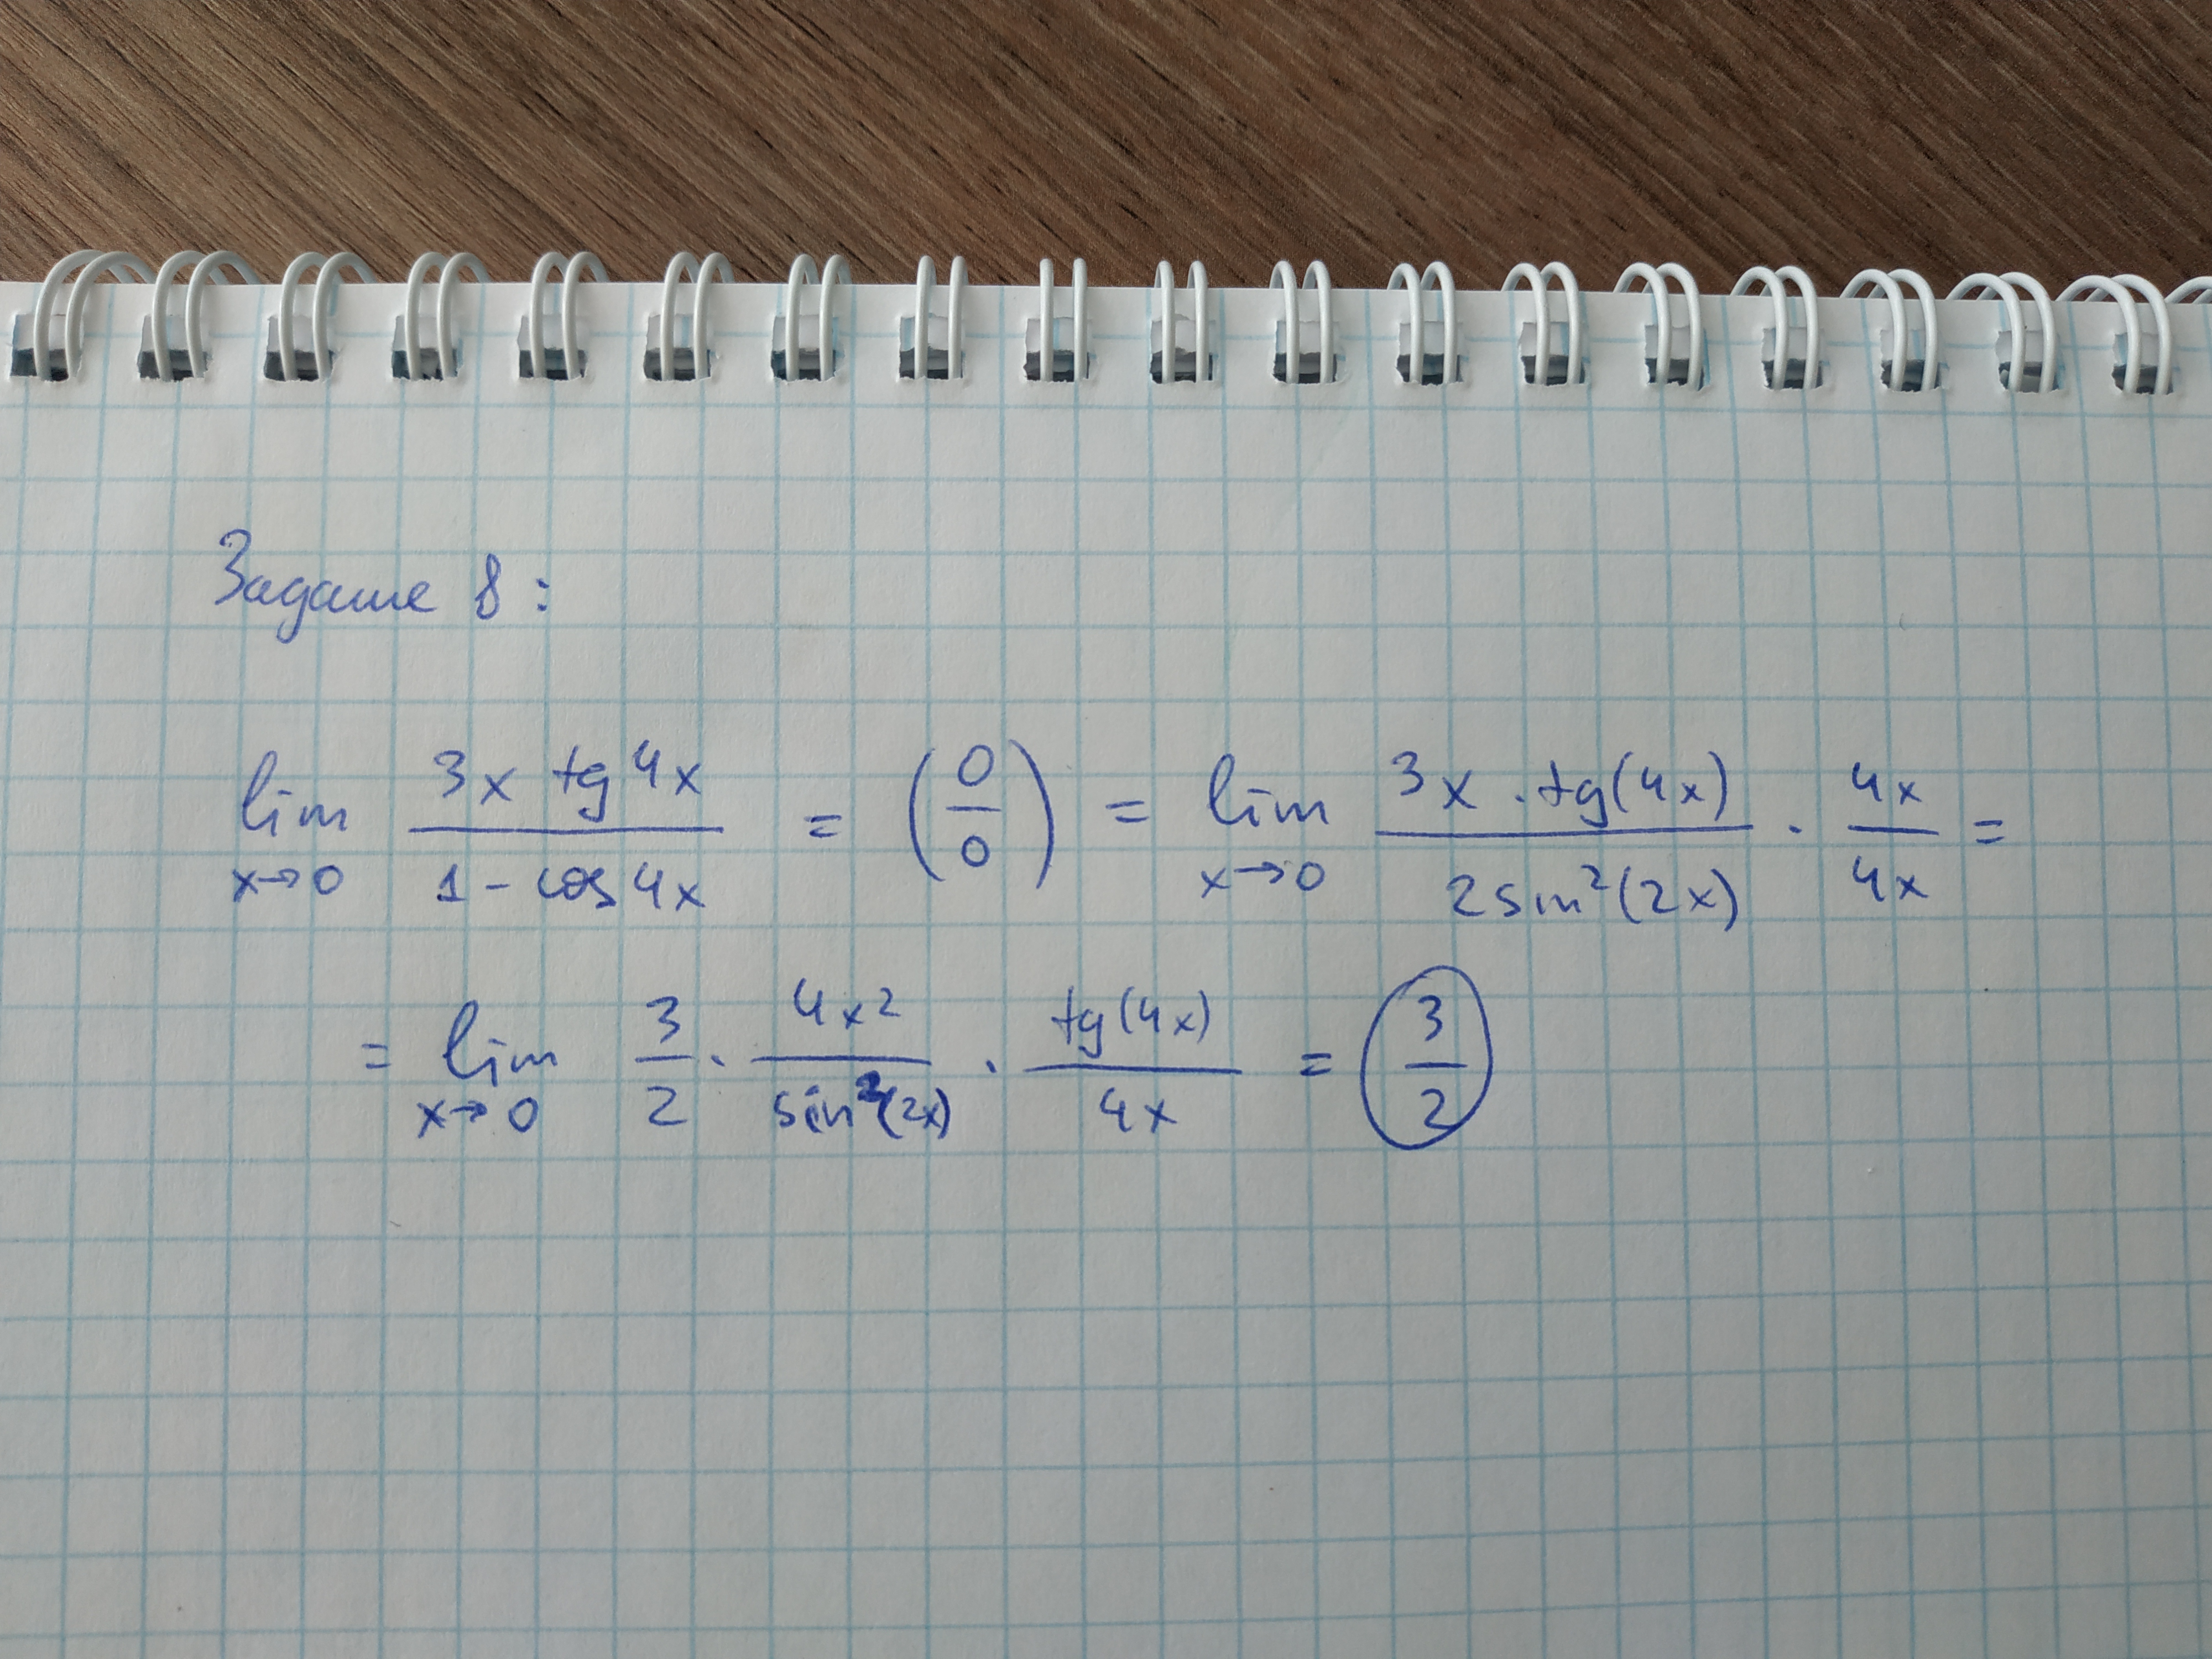 Задание 8:
lim x→0 (3x tg 4x)/(1 - cos 4x) = (0/0) = lim x→0 (3x · tg(4x))/(2 sin²(2x)) · 4x/4x =
= lim x→0 3/2 · 4x²/sin²(2x) · tg(4x)/4x = 3/2